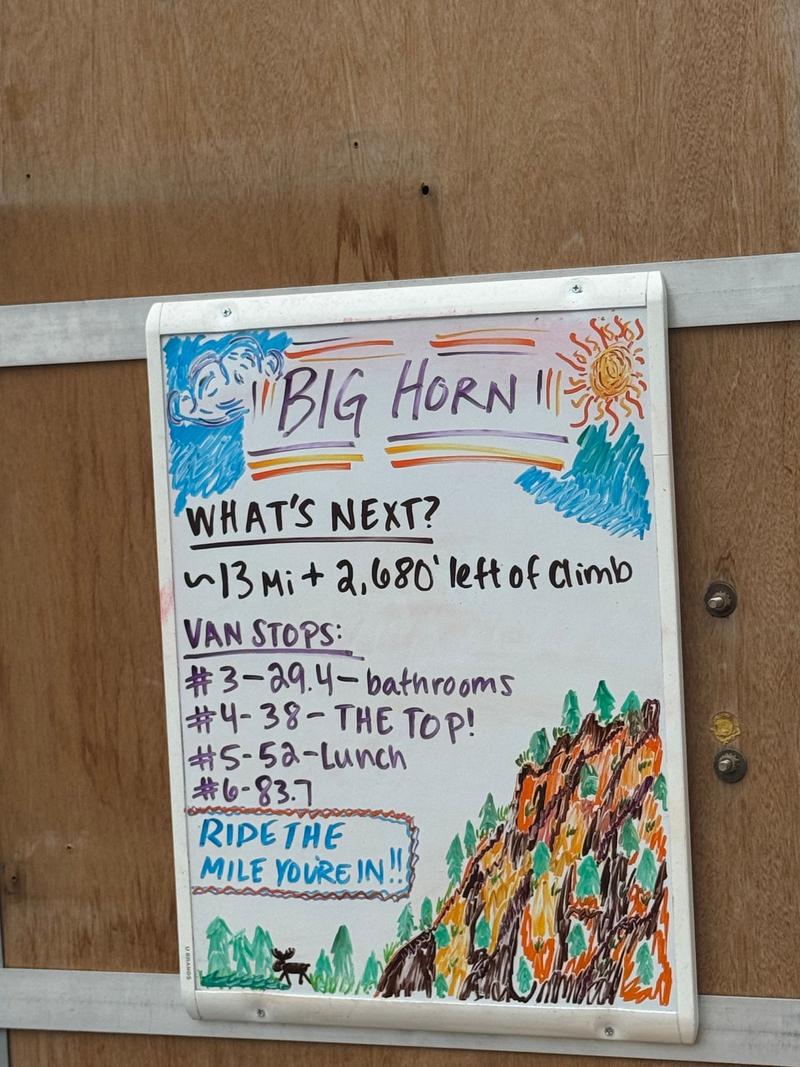 BIG HORN
WHAT'S NEXT?
~13 Mi + 2,680' left of climb
VAN STOPS:
#3-29.4-bathrooms
#4-38-THE TOP!
#5-52-Lunch
#6-83.7
RIDE THE
MILE YOU'RE IN!!
U BRANDS